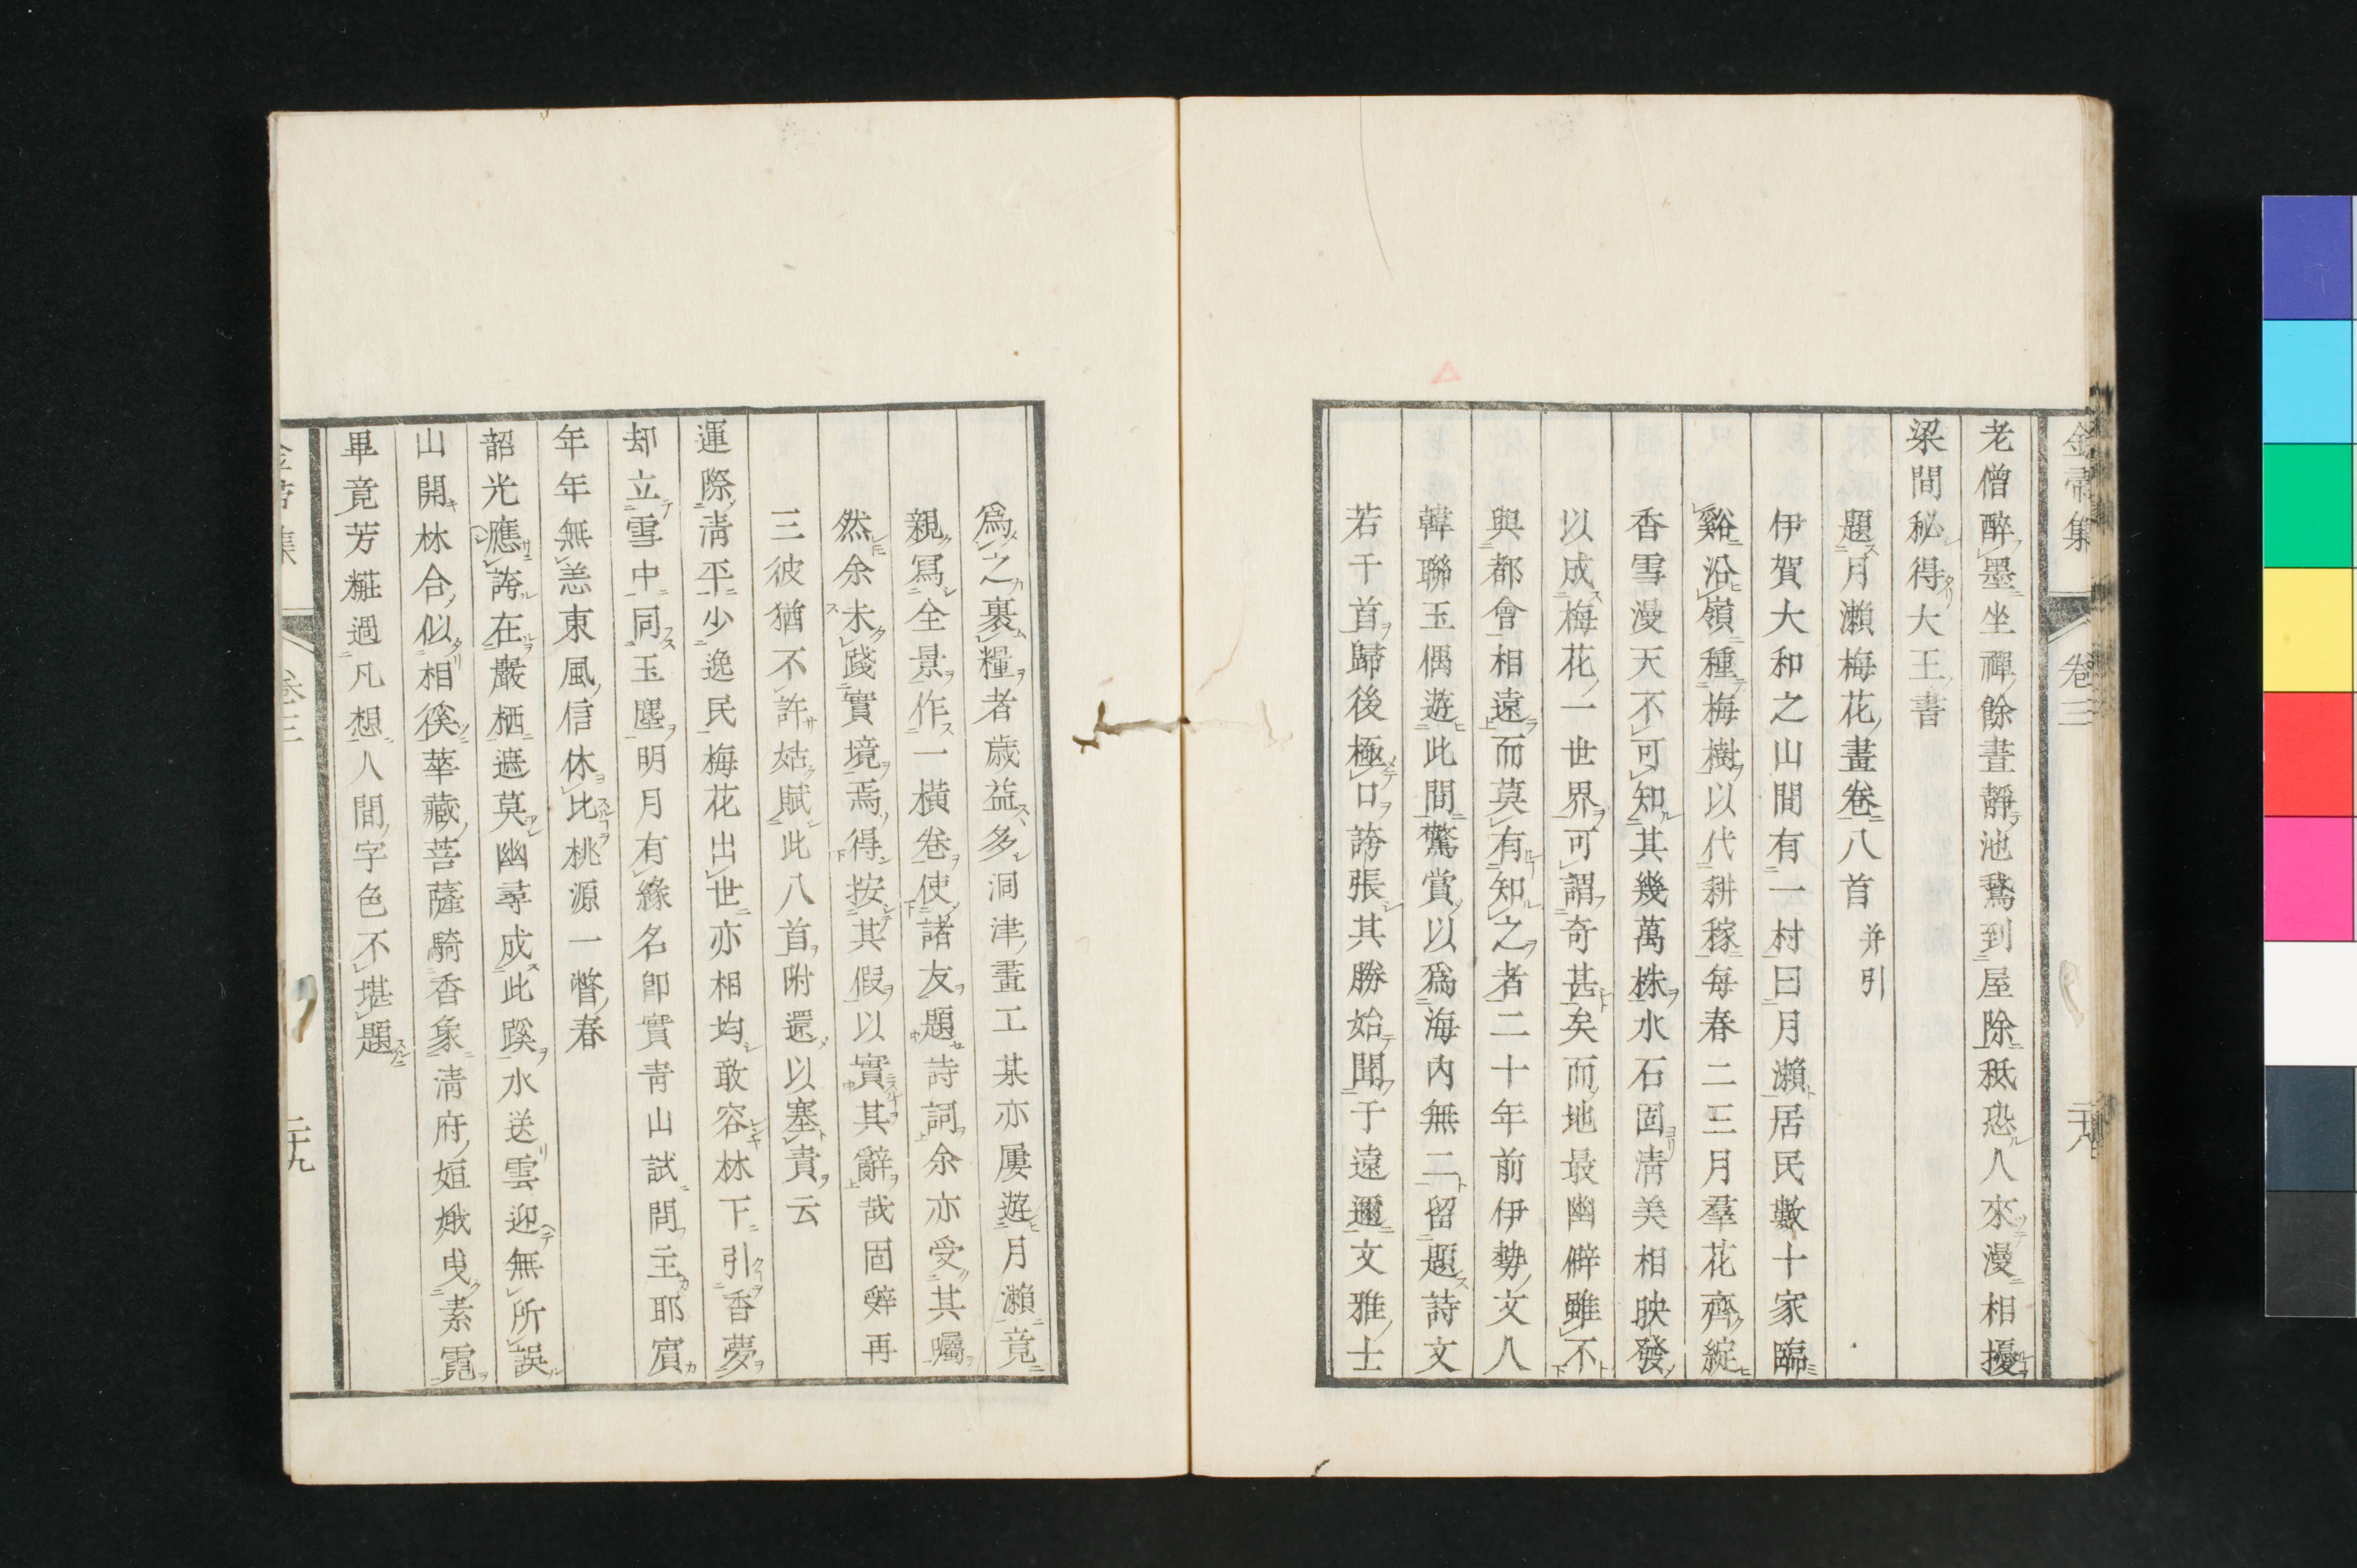 老僧醉墨坐禪餘晝靜池鵞到屋除秪恐人來漫相擾
梁間秘得大王書
題月瀨梅花畫卷八首 并引
伊賀大和之山間有一村曰月瀨居民數十家臨
谿沿嶺種梅樹以代耕稼每春二三月羣花齊綻
香雪漫天不可知其幾萬株水石固淸美相映發
以成梅花一世界可謂奇甚矣而地最幽僻雖不
與都會相遠而莫有知之者二十年前伊勢文人
韓聯玉偶遊此間驚賞以爲海內無二留題詩文
若干首歸後極口誇張其勝始聞于遠邇文雅士
爲之裹糧者歲益多洞津畫工某亦屢遊月瀨竟
親寫全景作一橫卷使諸友題詩詞余亦受其囑
然余未踐實境焉得按其假以實其辭哉固辭再
三彼猶不許姑賦此八首附還以塞責云
運際淸平少逸民梅花出世亦相均敢容林下引香夢
却立雪中同玉塵明月有緣名卽實靑山試問主耶賓
年年無恙東風信休比桃源一瞥春
韶光應誇在巖栖遮莫幽尋成此蹊水送雲迎無所誤
山開林合似相徯華藏菩薩騎香象淸府姮娥曳素霓
畢竟芳糚過凡想人間字色不堪題
卷三
卷三
二十九